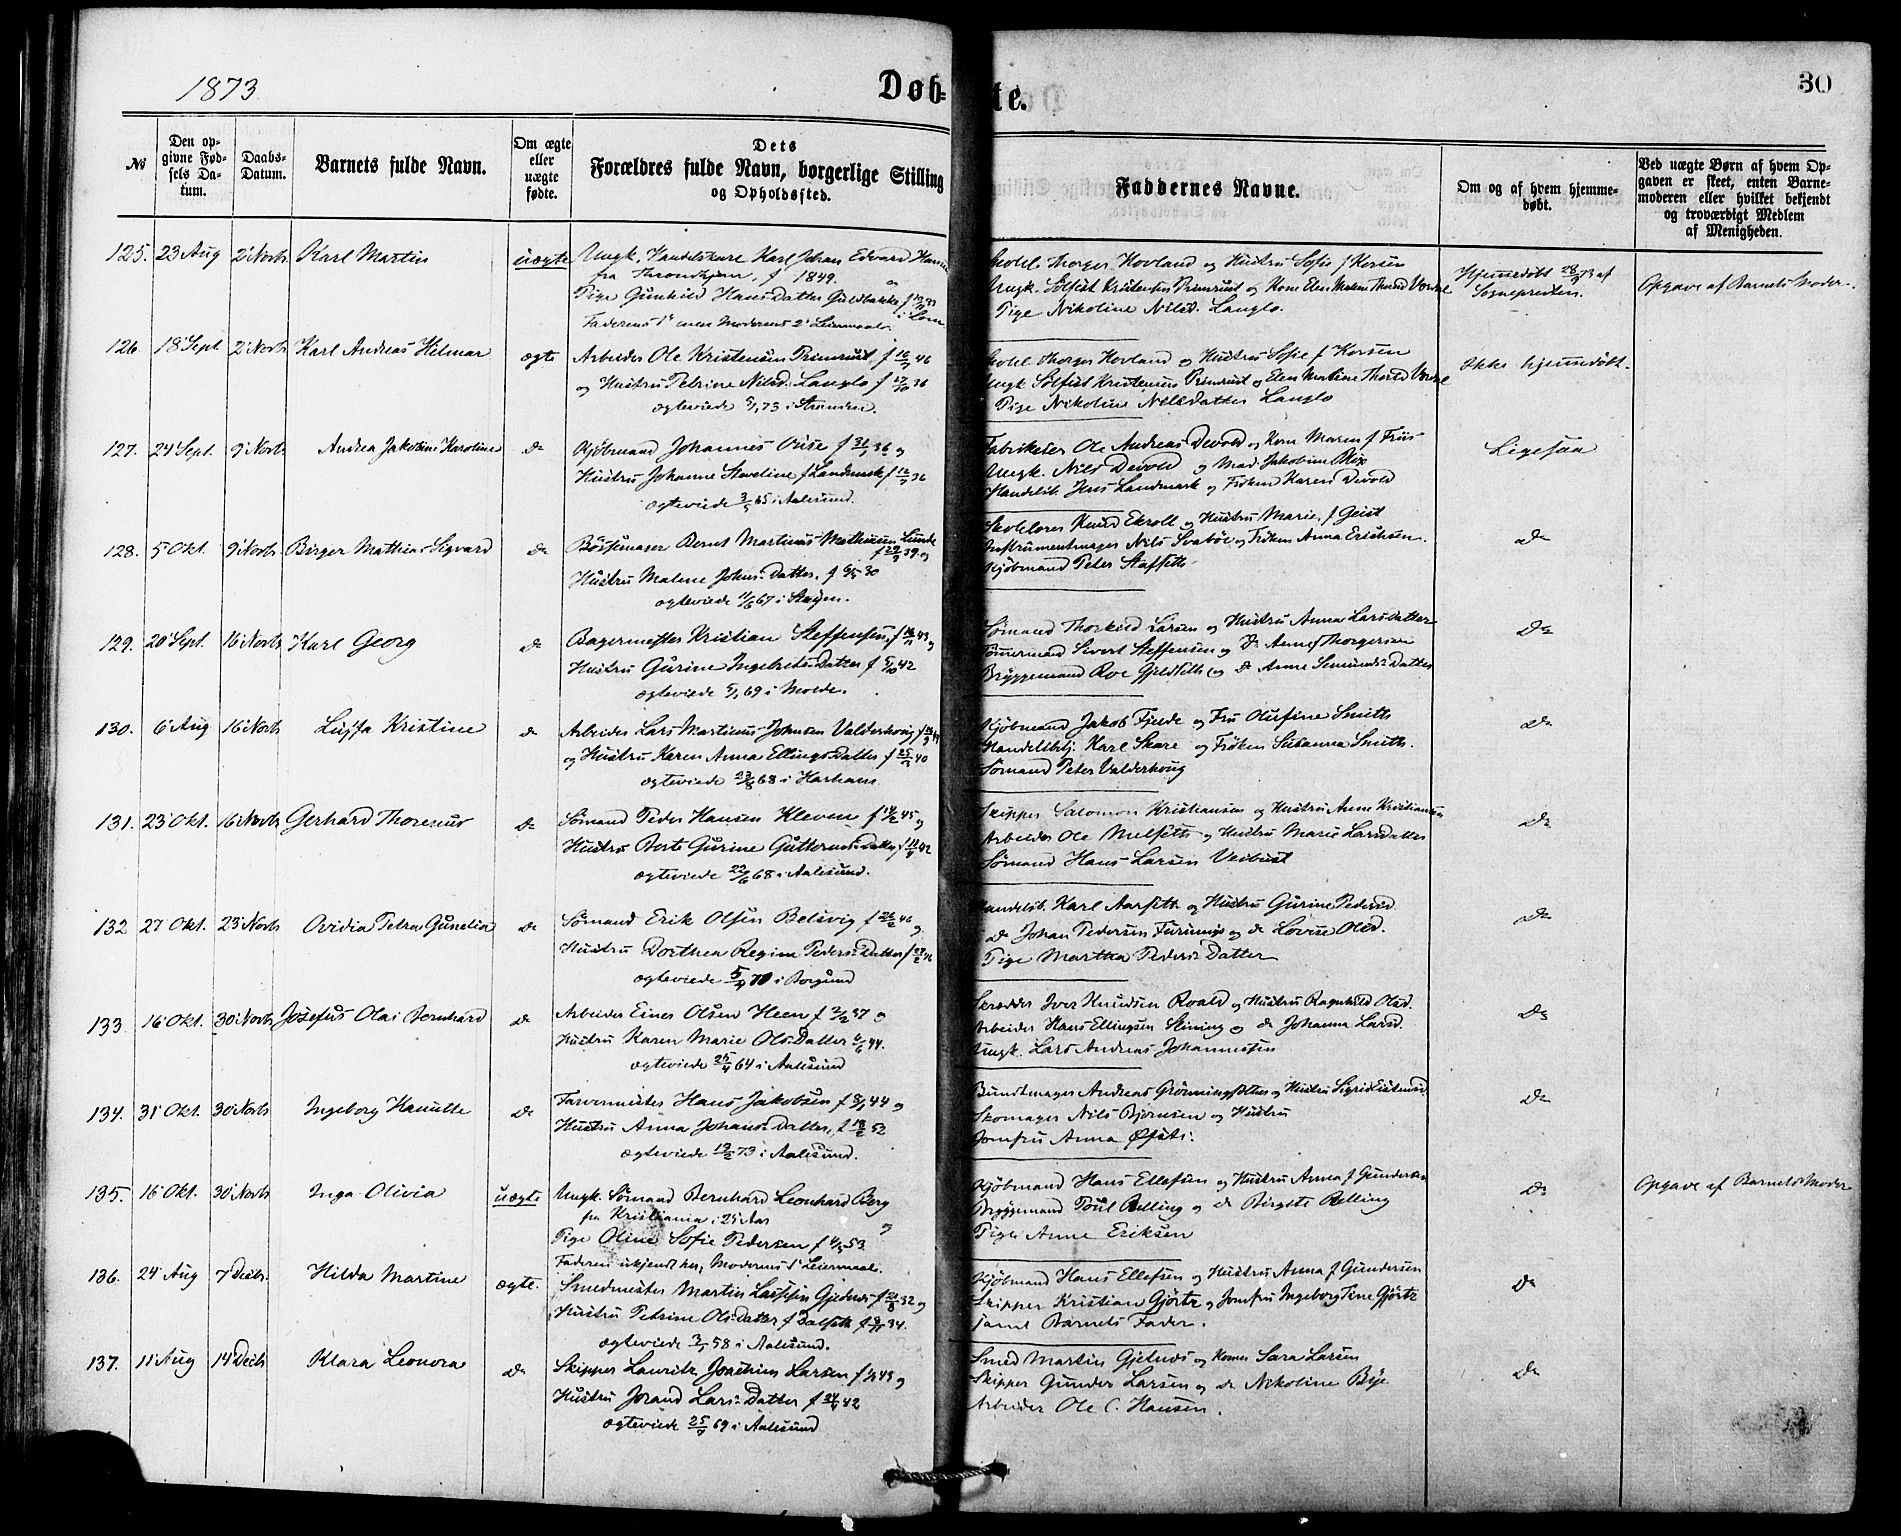 1873
Døb-
te.
30
№
Den op-
givne Fød-
sels Da-
tum.
Daabs-
Datum.
Barnets fulde Navn.
Om ægte
eller
uægte
fødte.
Dets
Forældres fulde Navn, borgerlige Stilling
og Opholdssted.
Faddernes Navne.
Om og af hvem hjemme-
døbt.
Ved uægte Børn af hvem Op-
gaven er skeet, enten Barne-
moderen eller hvilket bekjendt
og troværdigt Medlem
af Menigheden.
125. 23 Aug 2 Novb Karl Martin uægte
Ungk. Handelskarl Karl Johan Edvard
fra Throndhjem, f 1849.
Pige Gunhild Hansdatter
Faderens 1' men Moderens 2' Leiermaal.
Hovland og Hustru Sofie f Korsen
Ungk. Kristensen Primrust og Kone Elen
Pige Nikoline Nilsd. Langlo.
Hjemmedøbt af
Sognepresten.
Opgave af Barnets Moder.
126. 18 Sept 2 Novb Karl Andreas Hilmar ægte
Arbeider Ole Kristensen Primrust f 46
og Hustru Petrine Nilsd. Langlo f 36
ægteviede 73 i Stranden.
Hovland og Hustru Sofie f Korsen
Ungk Kristensen Primrust og Elen Matine
Pige Nikoline Nilsdatter Langlo
Ikke hjemmedøbt.
127. 24 Sept. 9 Novb Andrea Jakobine Karoline Do
Kjøbmand Johannes f 31 36 og
Hustru Johanne f Landmark f 36
ægteviede 65 i Aalesund.
Fabrikeier Ole Andreas Devold og Kone Maren f Friis
Ungk. Nils Devold og Mad. Jakobine
Handelsb. Jens Landmark og Frøken Karen Devold
Ligesaa
128. 5 Okt. 9 Novb Birger Mathias Sigvard Do
Bøssemager Bernt Martinus Mathiesen
39 og
Hustru Malene Johns-Datter, f 30
ægteviede 11/6 67 i
Skolelærer Knud Ekroll og Hustru Marie f Geist
Instrumentmager Nils og Frøken Anna Erichsen.
Kjøbmand Peter Stafseth
Do
129. 20 Sept. 16 Novb Karl Georg Do
Bagermester Kristian Steffensen, f 43 og
Hustru Gurine Datter f 5/10 42
ægteviede 69 i Molde.
Sømand Larsen og Hustru Anna Larsdatter
Tømmermand Sivert Steffensen og Do Anne Thorgersen
Bryggemand Roe og Do Anne Datter
Do
130. 6 Aug 16 Novb Kristine Do
Arbeider Lars Martinus Johnsen Valderhoug
og Hustru Karen Anna Ellings-Datter f 25 40
ægteviede 68 i Harham
Kjøbmand Jakob Fjelde og Fru Olufine Smith
Handelsbetj. Karl Skare og Frøken Susanna Smith.
Sømand Peter Valderhoug
Do
131. 23 Okt. 16 Novb Gerhard Thorenus Do
Sømand Peder Hansen Kleven f 45 og
Hustru Berte Gurine Guttorms-Datter f 42
ægteviede 22/6 68 i Aalesund.
Skipper Salomon Kristiansen og Hustru Anne Kristiansen
Arbeider Ole og Hustru Marie Larsdatter
Sømand Hans Larsen
Do
132 27 Okt. 23 Novb Ovidia Petra Gunelia Do
Sømand Erik Olsen f 46 og
Hustru Dorthea Regine Peders-Datter
ægteviede 70 i Borgund
Handelsb. Karl Aarseth og Hustru Gurine Pedersd.
do Johan Pedersen og do Lovise Olsd.
Pige Martha Peders-Datter
Do
133. 16 Okt. 30 Novb Josefus Olai Bernhard Do
Arbeider Einer Olsen Heen f 2/2 37 og
Hustru Karen Marie Ols-Datter 6/6 44.
ægteviede 64 i Aalesund
Skrædder Iver Knudsen Roald og Hustru Ragnhild Olsd.
Arbeider Hans Ellingsen og do Johanna Larsd.
Ungk. Lars Andreas Johannessen
Do
134. 31 Okt. 30 Novb Ingeborg Do
Farvermester Hans Jakobsen f 44 og
Hustru Anna Johans-Datter, f 52
ægteviede 73 i Aalesund.
Bundtmager Andreas og Hustru Sigrid
Skomager Nils Bjørnsen og Hustru
Jomfru Anna
Do
135. 16 Okt. 30 Novb Inga Olivia uægte
Ungk. Sømand Bernhard Leonhard Berg
fra Kristiania i 25 Aar og
Pige Oline Sofie Pedersen f 53.
Faderen ukjendt her, Moderens 1' Leiermaal.
Kjøbmand Hans Ellefsen og Hustru Anna f Gundersen
Bryggemand Poul Relling og do Birgite Relling
Pige Anne Eriksen
Do
Opgave af Barnets Moder
136. 24 Aug 7 Decb. Hilda Martine ægte.
Smedmester Martin Larssen Gjelnæs f 32 og
Hustru Petrine Ols-Datter f f 34.
ægteviede 58 i Aalesund.
Kjøbmand Hans Ellefsen og Hustru Anna f Gundersen
Skipper Kristian Gjørtz og Jomfru Ingeborg Tine Gjørtz
samt Barnets Fader.
Do
137. 11 Aug 14 Decb Klara Leonora Do
Skipper Lauritz Joachim Larsen f 43 og
Hustru Jorand Lars-Datter f 42
ægteviede 25 69 i Aalesund
Smed Martin Gjelnæs og Kone Sara Larsen
Skipper Gunder Larsen og do Nikoline Bye
Arbeider Ole C. Hansen.
Do